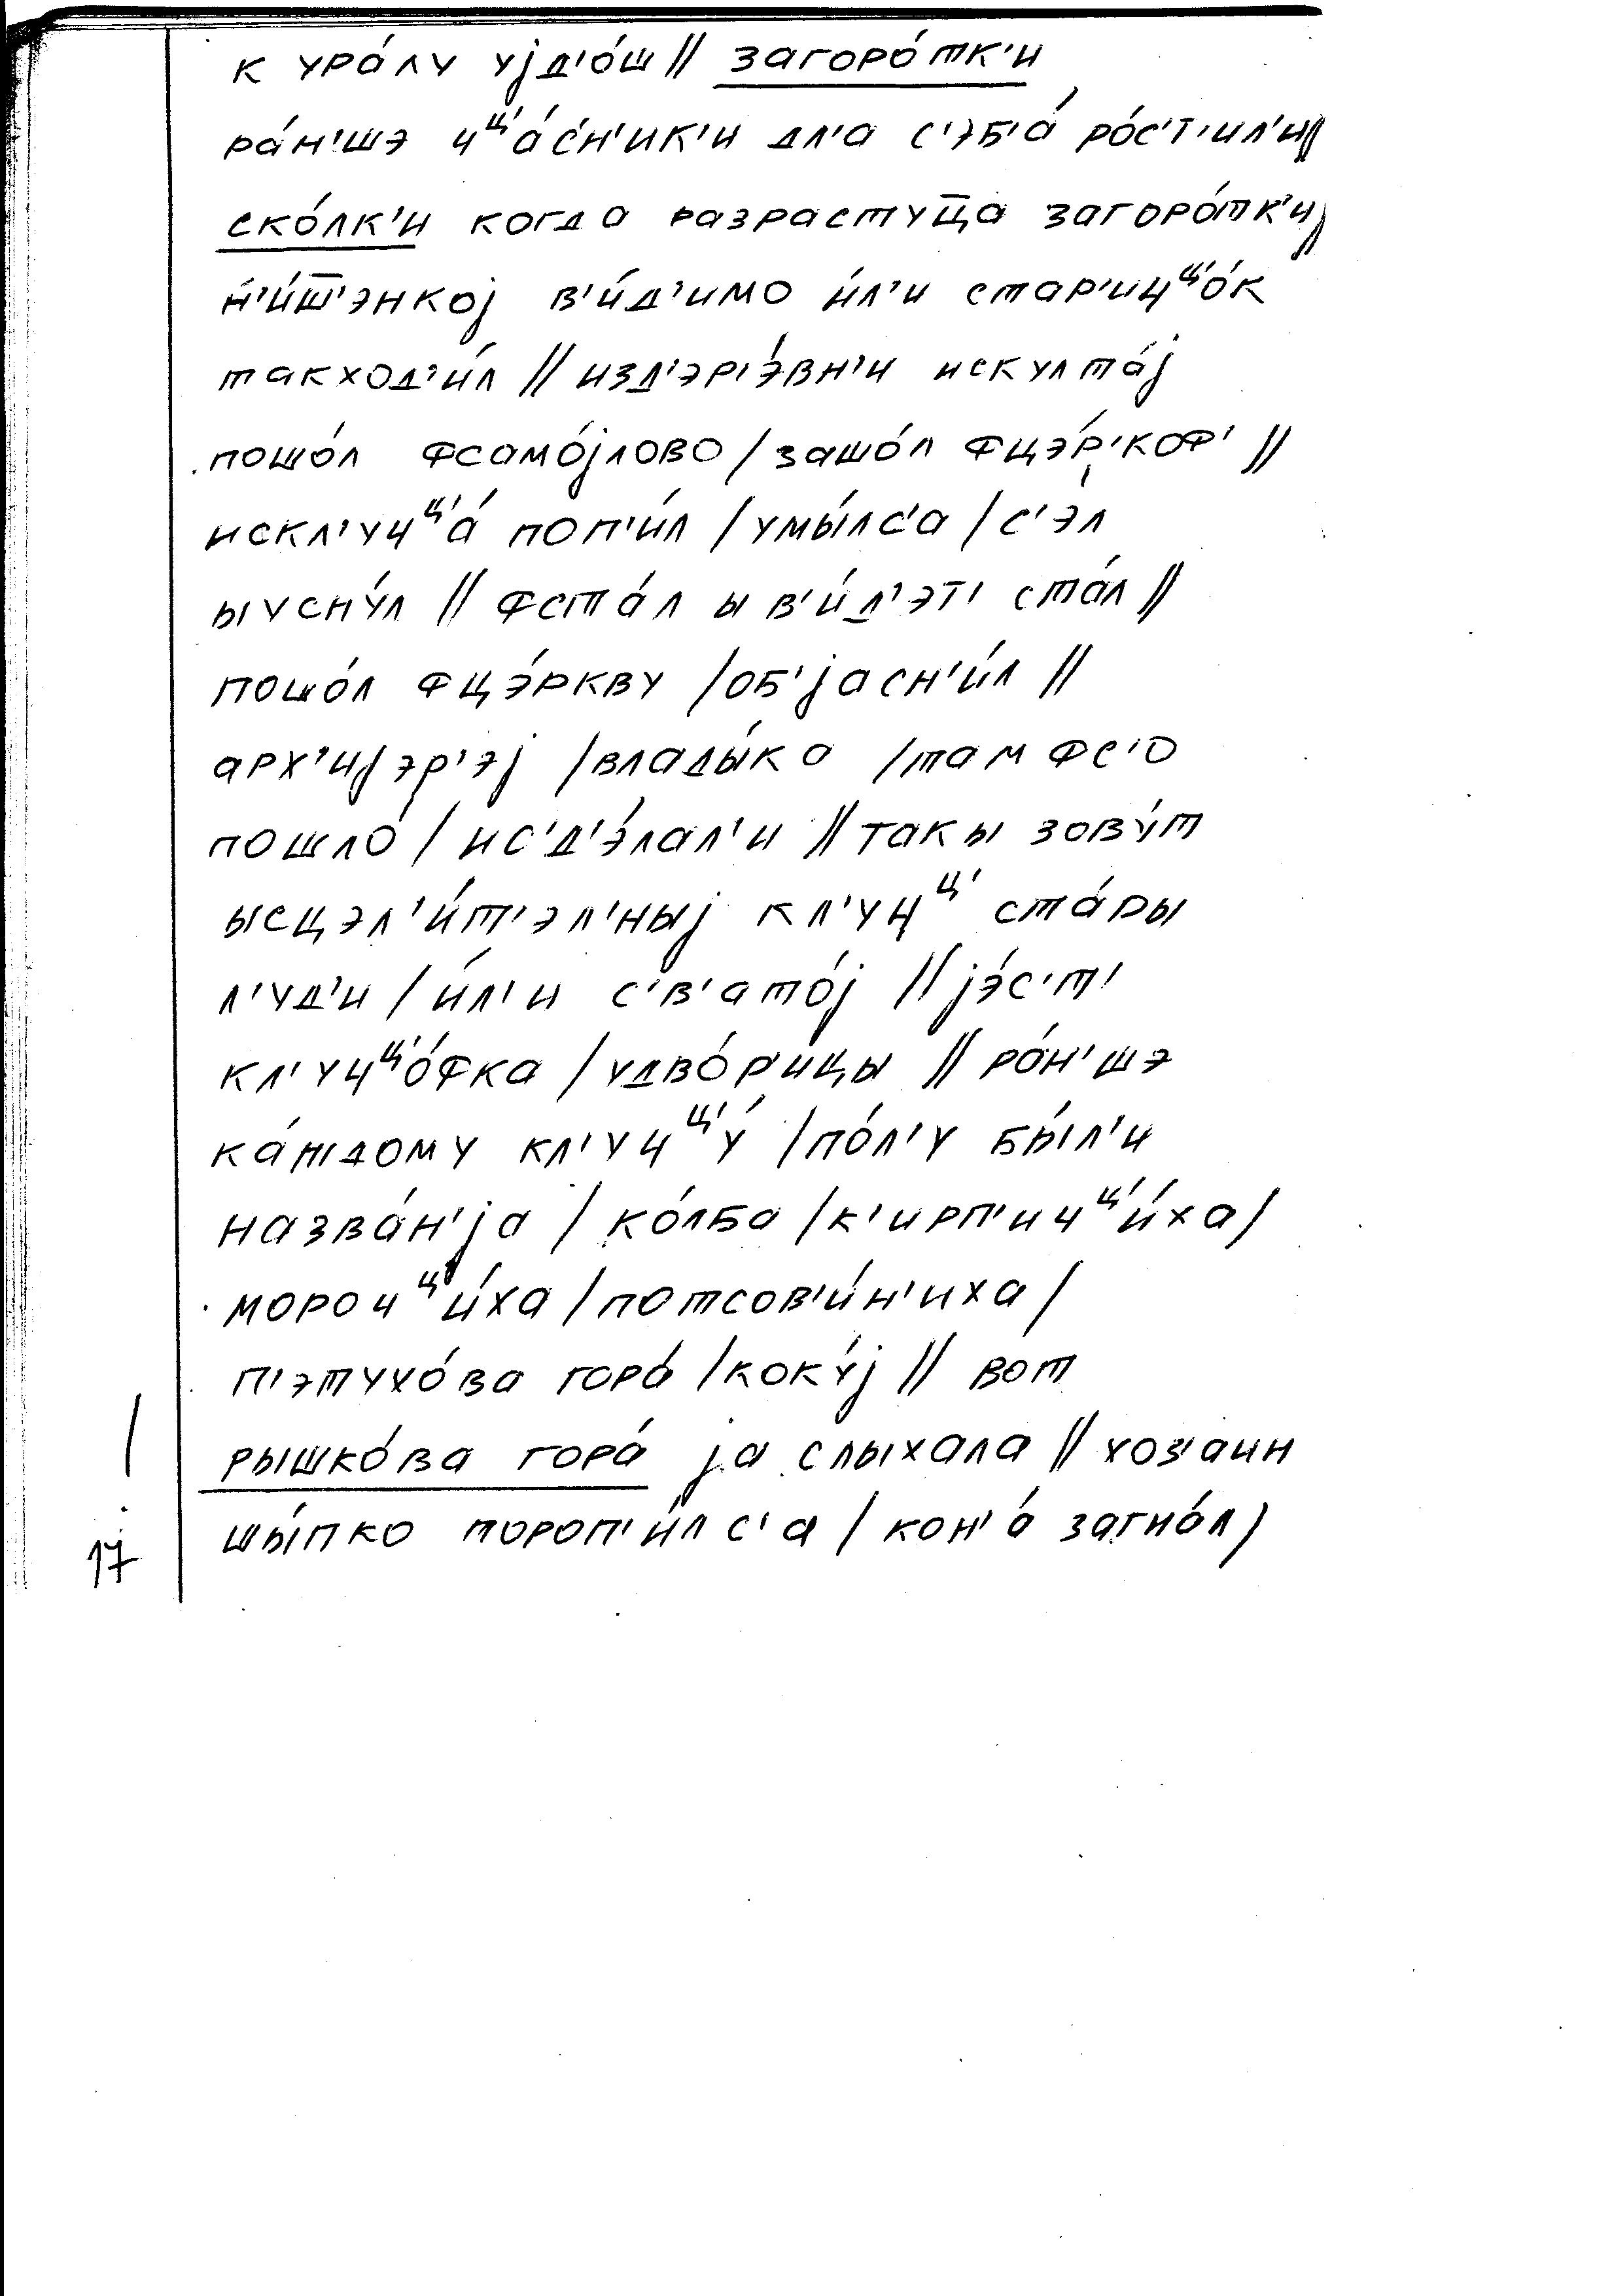 к ура́лу уjд'о́ш // загоро́тк'и
ра́н'шэ чᶣ'а́с'н'ик'и дл'а с'эб'а́ ро́с'т'ил'и//
ско́лк'и когда разрастуц̅а загоро́тк'и//
н'и́ш̅'энкоj в'и́д'имо и́л'и стар'ичᶣ'о́к
такход'и́л // изд'эр'э́вн'и искулта́j
пошо́л фсамо́jлово / зашо́л фцэ́р'коф' //
искл'учᶣ'а́ поп'и́л / умы́лс'а / с'эл
ыусну́л // фста́л ы в'и́д'эт' ста́л //
пошо́л фцэ́ркву / об'jасн'и́л //
арх'иjэр'эj / влады́ка / там фс'о
пошло́ / ис'д'э́лал'и // так ы зову́т
ысцэл'и́т'эл'ныj кл'учᶣ' ста́ры
л'уд'и / и́л'и с'в'ато́j // jэ́с'т'
кл'учᶣ'о́фка / удво́р'ицы // ра́н'шэ
ка́ждому кл'учᶣ'у́ / по́л'у бы́л'и
назва́н'jа / ко́лба / к'ирп'ичᶣ'и́ха /
морочᶣ'и́ха / потсов'и́н'иха /
п'этухо́ва гора́ / коку́j // вот
рышко́ва гора́ jа слыхала // хоз'аин
шы́пко тороп'и́лс'а / кон'а́ загна́л /
17